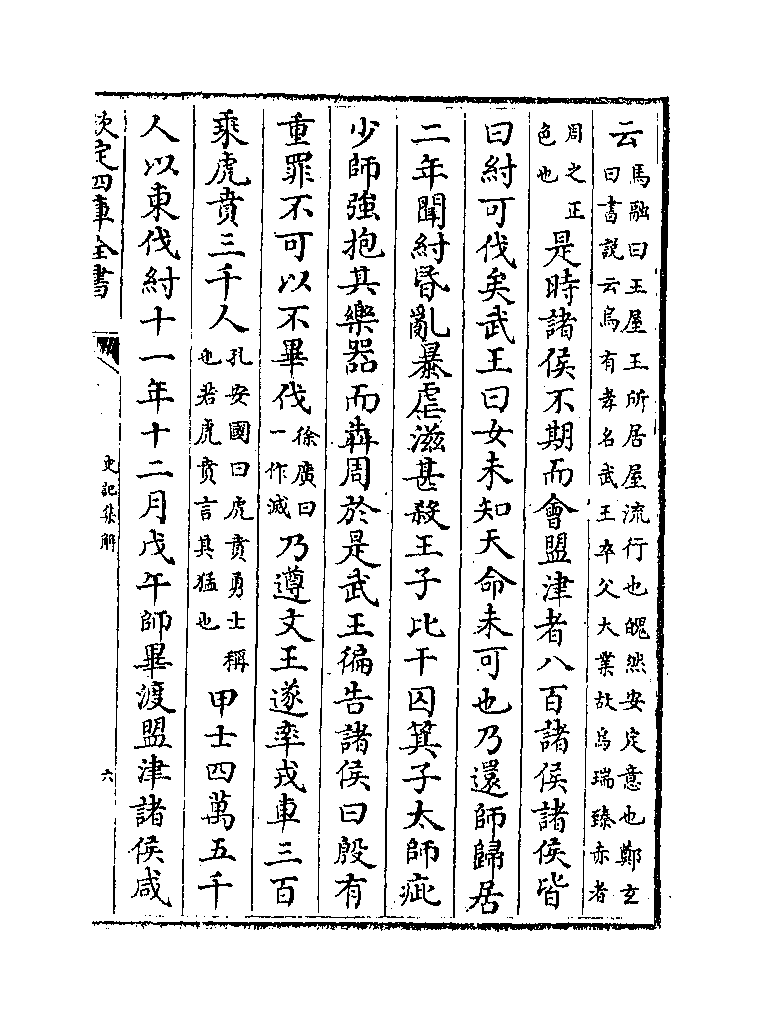 云馬融曰王屋王所居屋流行也魄然安定意也鄭玄曰書説云烏有孝名武王卒父大業故烏瑞臻赤者
周之正色也是時諸侯不期而會盟津者八百諸侯諸侯皆
曰紂可伐矣武王曰女未知天命未可也乃還師歸居
二年聞紂昏亂暴虐滋甚殺王子比干囚箕子太師疵
少師強抱其樂器而犇周於是武王徧告諸侯曰殷有
重罪不可以不畢伐徐廣曰一作滅乃遵文王遂率戎車三百
乘虎賁三千人孔安國曰虎賁勇士稱也若虎賁言其猛也甲士四萬五千
人以東伐紂十一年十二月戊午師畢渡盟津諸侯咸
欽定四庫全書 史記集解 六